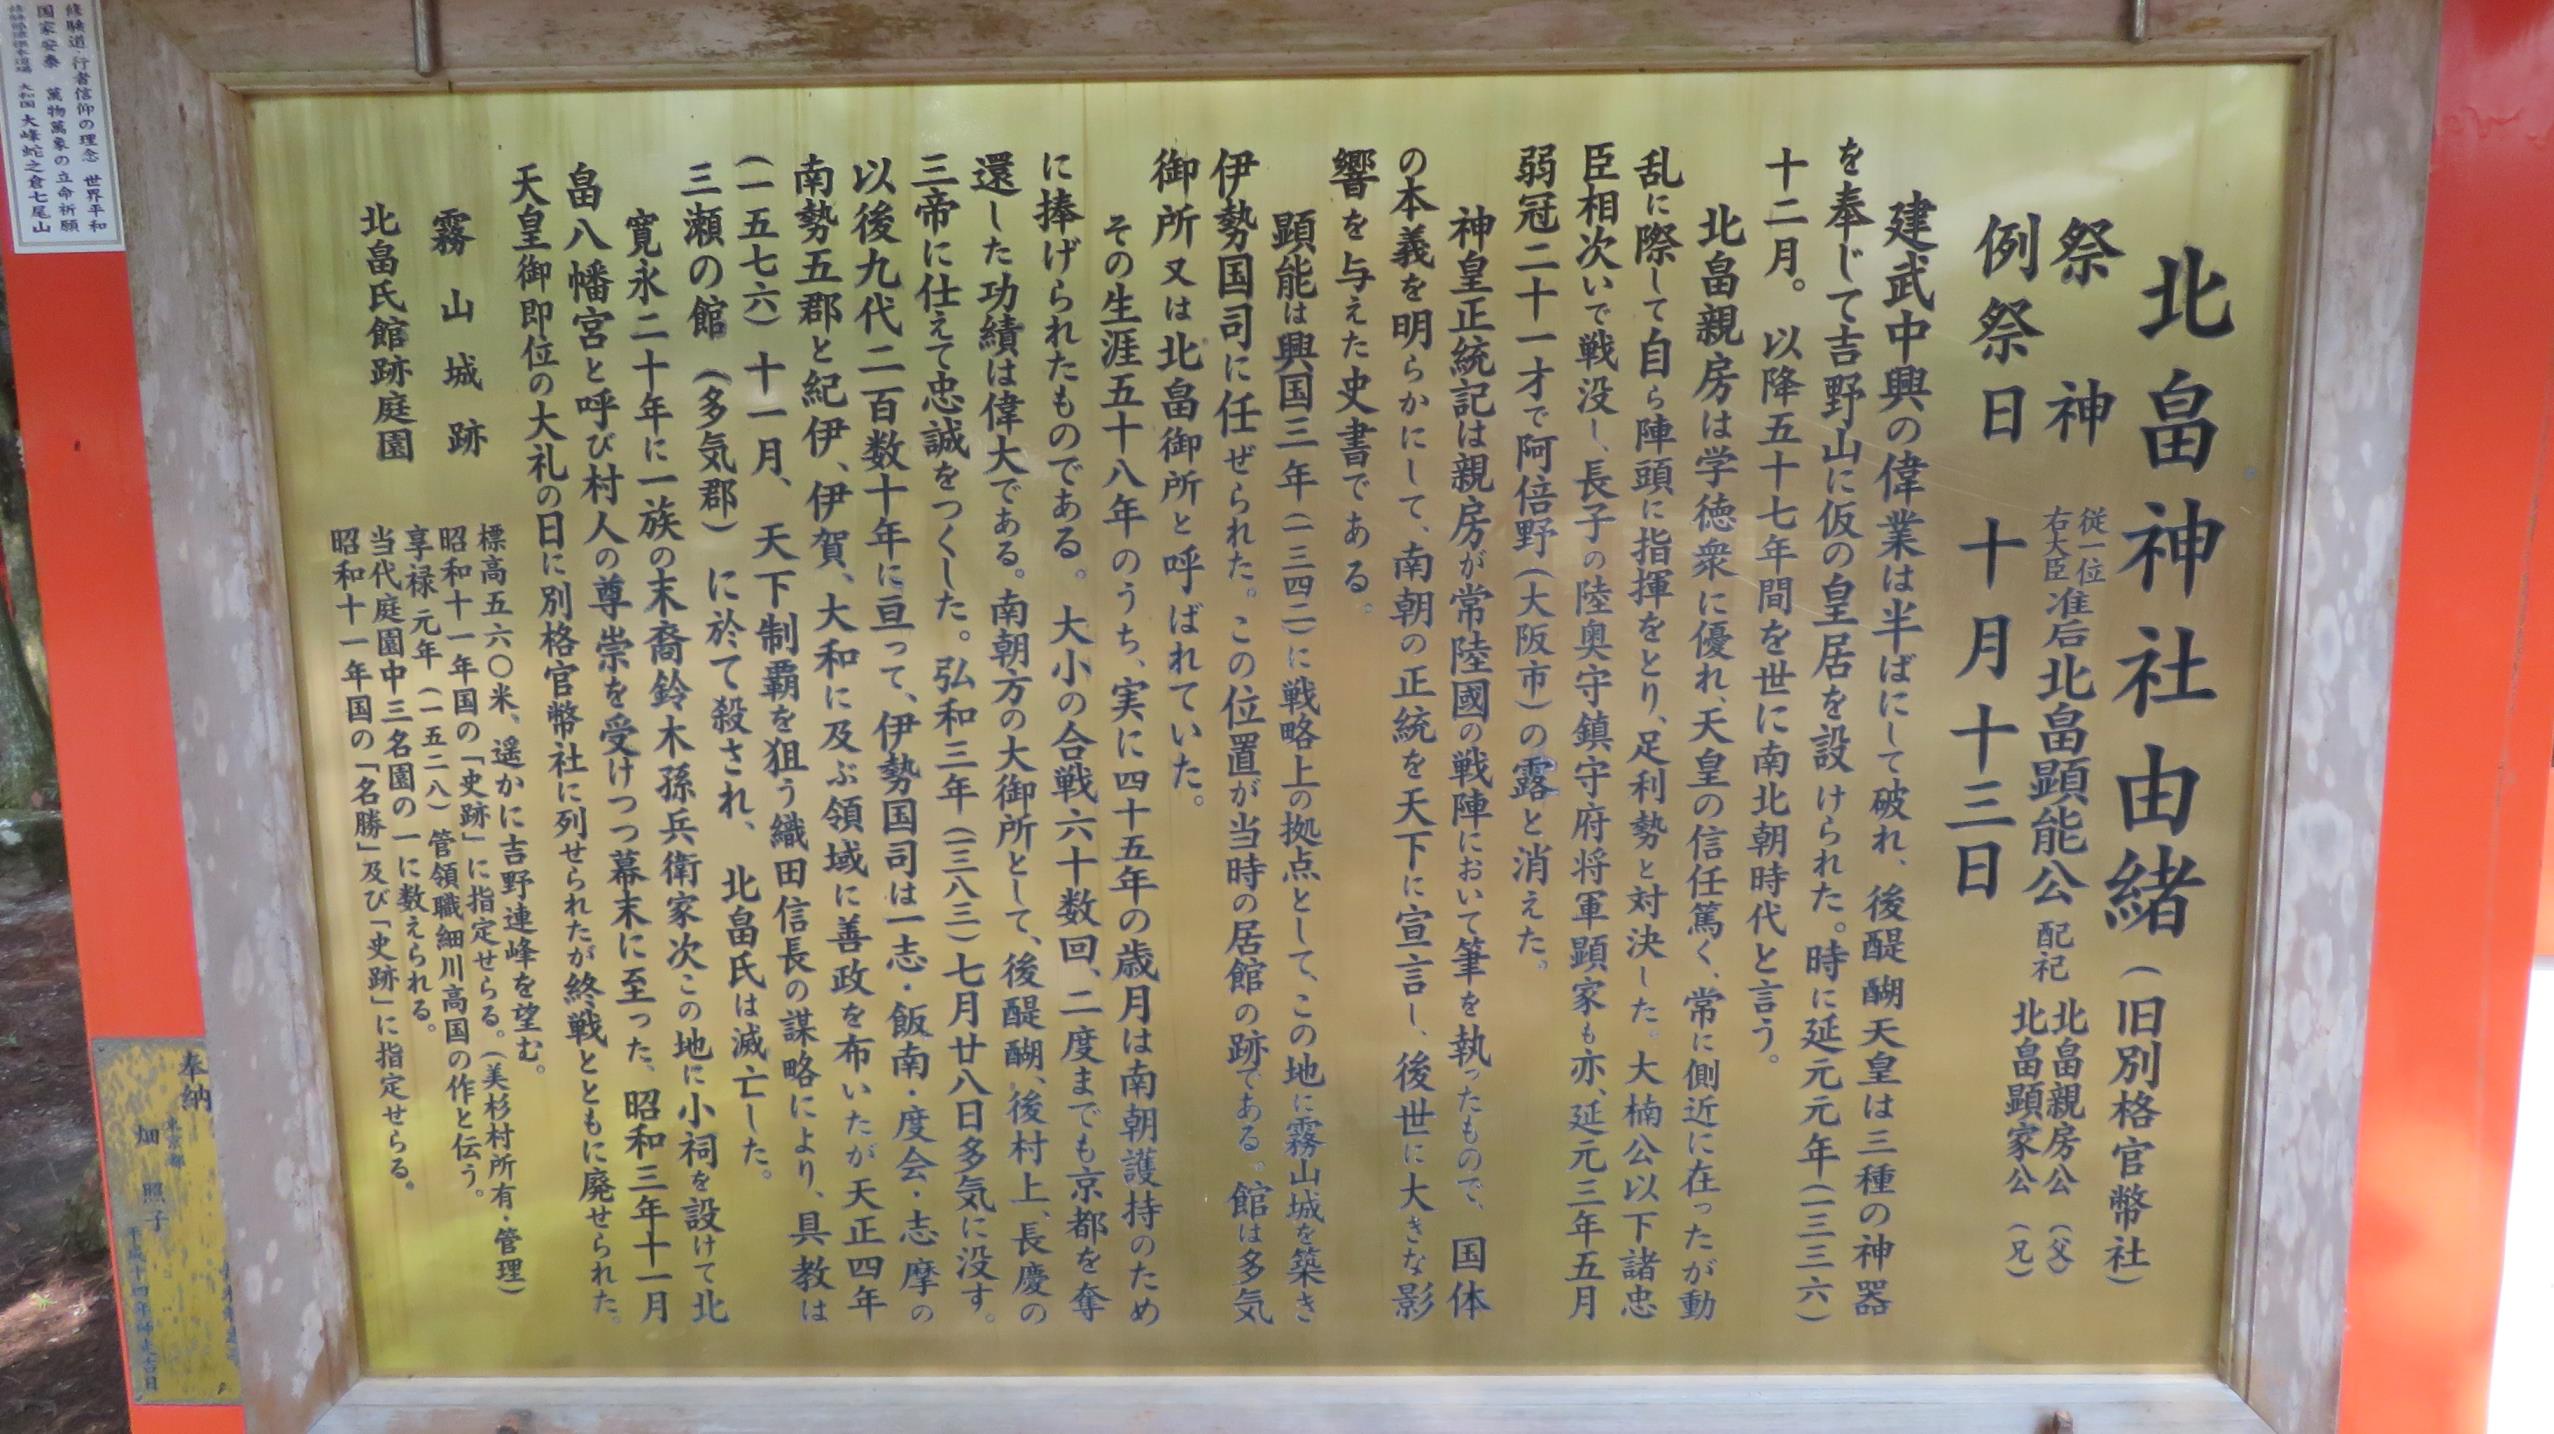 北畠神社由緒（旧別格官幣社）
祭神 従一位右大臣准后北畠顕能公 配祀 北畠親房公（父）
北畠顕家公（兄）
例祭日 十月十三日
建武中興の偉業は半ばにして破れ、後醍醐天皇は三種の神器
を奉じて吉野山に仮の皇居を設けられた。時に延元元年（一三三六）
十二月。以降五十七年間を世に南北朝時代と言う。
北畠親房は学徳衆に優れ、天皇の信任篤く、常に側近に在ったが動
乱に際して自ら陣頭に指揮をとり、足利勢と対決した。大楠公以下諸忠
臣相次いで戦没し、長子の陸奥守鎮守府将軍顕家も亦、延元三年五月
弱冠二十一才で阿倍野（大阪市）の露と消えた。
神皇正統記は親房が常陸國の戦陣において筆を執ったもので、国体
の本義を明らかにして、南朝の正統を天下に宣言し、後世に大きな影
響を与えた史書である。
顕能は興国三年（一三四二）に戦略上の拠点として、この地に霧山城を築き
伊勢国司に任ぜられた。この位置が当時の居館の跡である。館は多気
御所又は北畠御所と呼ばれていた。
その生涯五十八年のうち、実に四十五年の歳月は南朝護持のため
に捧げられたものである。大小の合戦六十数回、二度までも京都を奪
還した功績は偉大である。南朝方の大御所として、後醍醐、後村上、長慶の
三帝に仕えて忠誠をつくした。弘和三年（一三八三）七月廿八日多気に没す。
以後九代二百数十年に亘って、伊勢国司は一志・飯南・度会・志摩の
南勢五郡と紀伊、伊賀、大和に及ぶ領域に善政を布いたが天正四年
（一五七六）十一月、天下制覇を狙う織田信長の謀略により、具教は
三瀬の館（多気郡）に於て殺され、北畠氏は滅亡した。
寛永二十年に一族の末裔鈴木孫兵衛家次この地に小祠を設けて北
畠八幡宮と呼び村人の尊崇を受けつつ幕末に至った、昭和三年十一月
天皇御即位の大礼の日に別格官幣社に列せられたが終戦とともに廃せられた。
霧山城跡 標高五六〇米、遥かに吉野連峰を望む。
昭和十一年国の「史跡」に指定せらる。（美杉村所有・管理）
北畠氏館跡庭園 享禄元年（一五二八）管領職細川高国の作と伝う。
当代庭園中三名園の一に数えられる。
昭和十一年国の「名勝」及び「史跡」に指定せらる。
修験道・行者信仰の理念 世界平和
国家安泰 萬物萬象の立命祈願
大和国 大峰蛇之倉七尾山
奉納
東京都
畑照子
平成十四年師走吉日